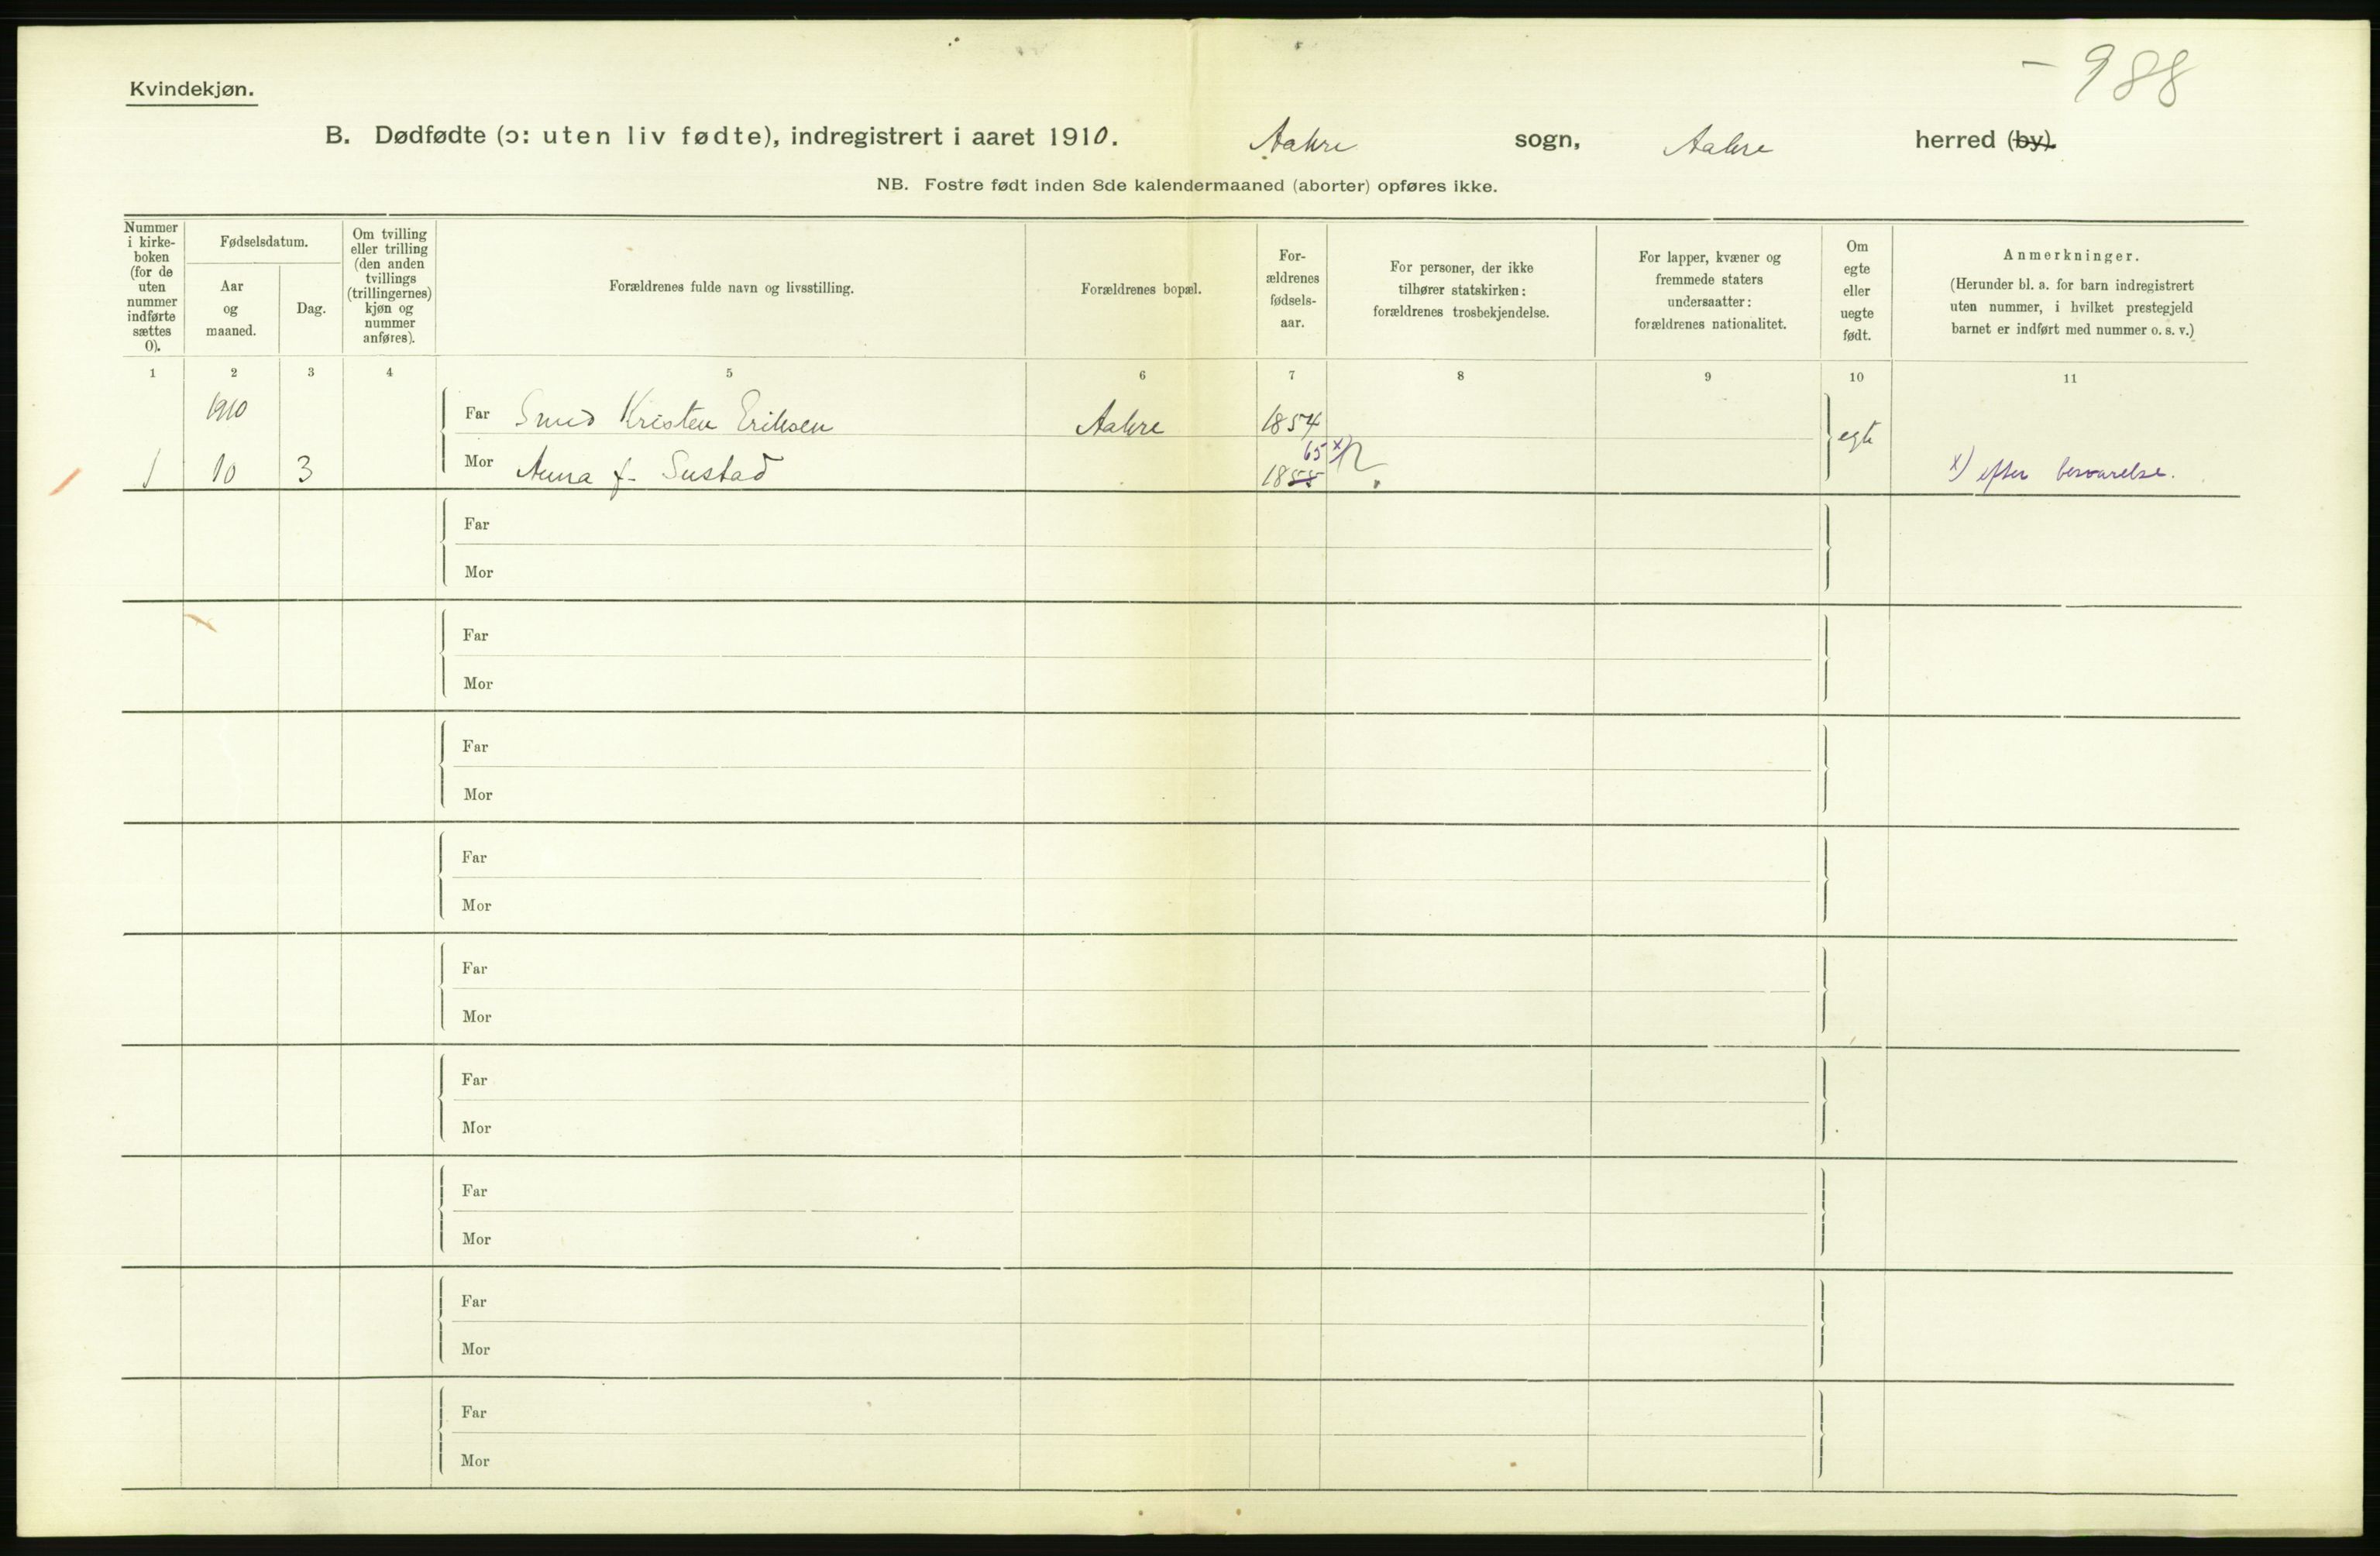 - 988
Kvindekjøn.
B. Dødfødte (ɔ: uten liv fødte), indregistrert i aaret 1910. Aakre sogn, Aakre herred (by).
NB. Fostre født inden 8de kalendermaaned (aborter) opføres ikke.
Nummer
i kirke-
boken
(for de
uten
nummer
indførte
sættes
0).
Fødselsdatum.
Aar
og
maaned.
Dag.
Om tvilling
eller trilling
(den anden
tvillings
(trillingernes)
kjøn og
nummer
anføres).
Forældrenes fulde navn og livsstilling.
Forældrenes bopæl.
For-
ældrenes
fødsels-
aar.
For personer, der ikke
tilhører statskirken:
forældrenes trosbekjendelse.
For lapper, kvæner og
fremmede staters
undersaatter:
forældrenes nationalitet.
Om
egte
eller
uegte
født.
Anmerkninger.
(Herunder bl. a. for barn indregistrert
uten nummer, i hvilket prestegjeld
barnet er indført med nummer o. s. v.)
1 2 3 4 5 6 7 8 9 10 11
1910 Far Smed Kristen Eriksen Aakre 1854 egte
65 x)
1 10 3 Mor Anna f. Sustad 1855 x) efter besvarelse.
Far
Mor
Far
Mor
Far
Mor
Far
Mor
Far
Mor
Far
Mor
Far
Mor
Far
Mor
Far
Mor